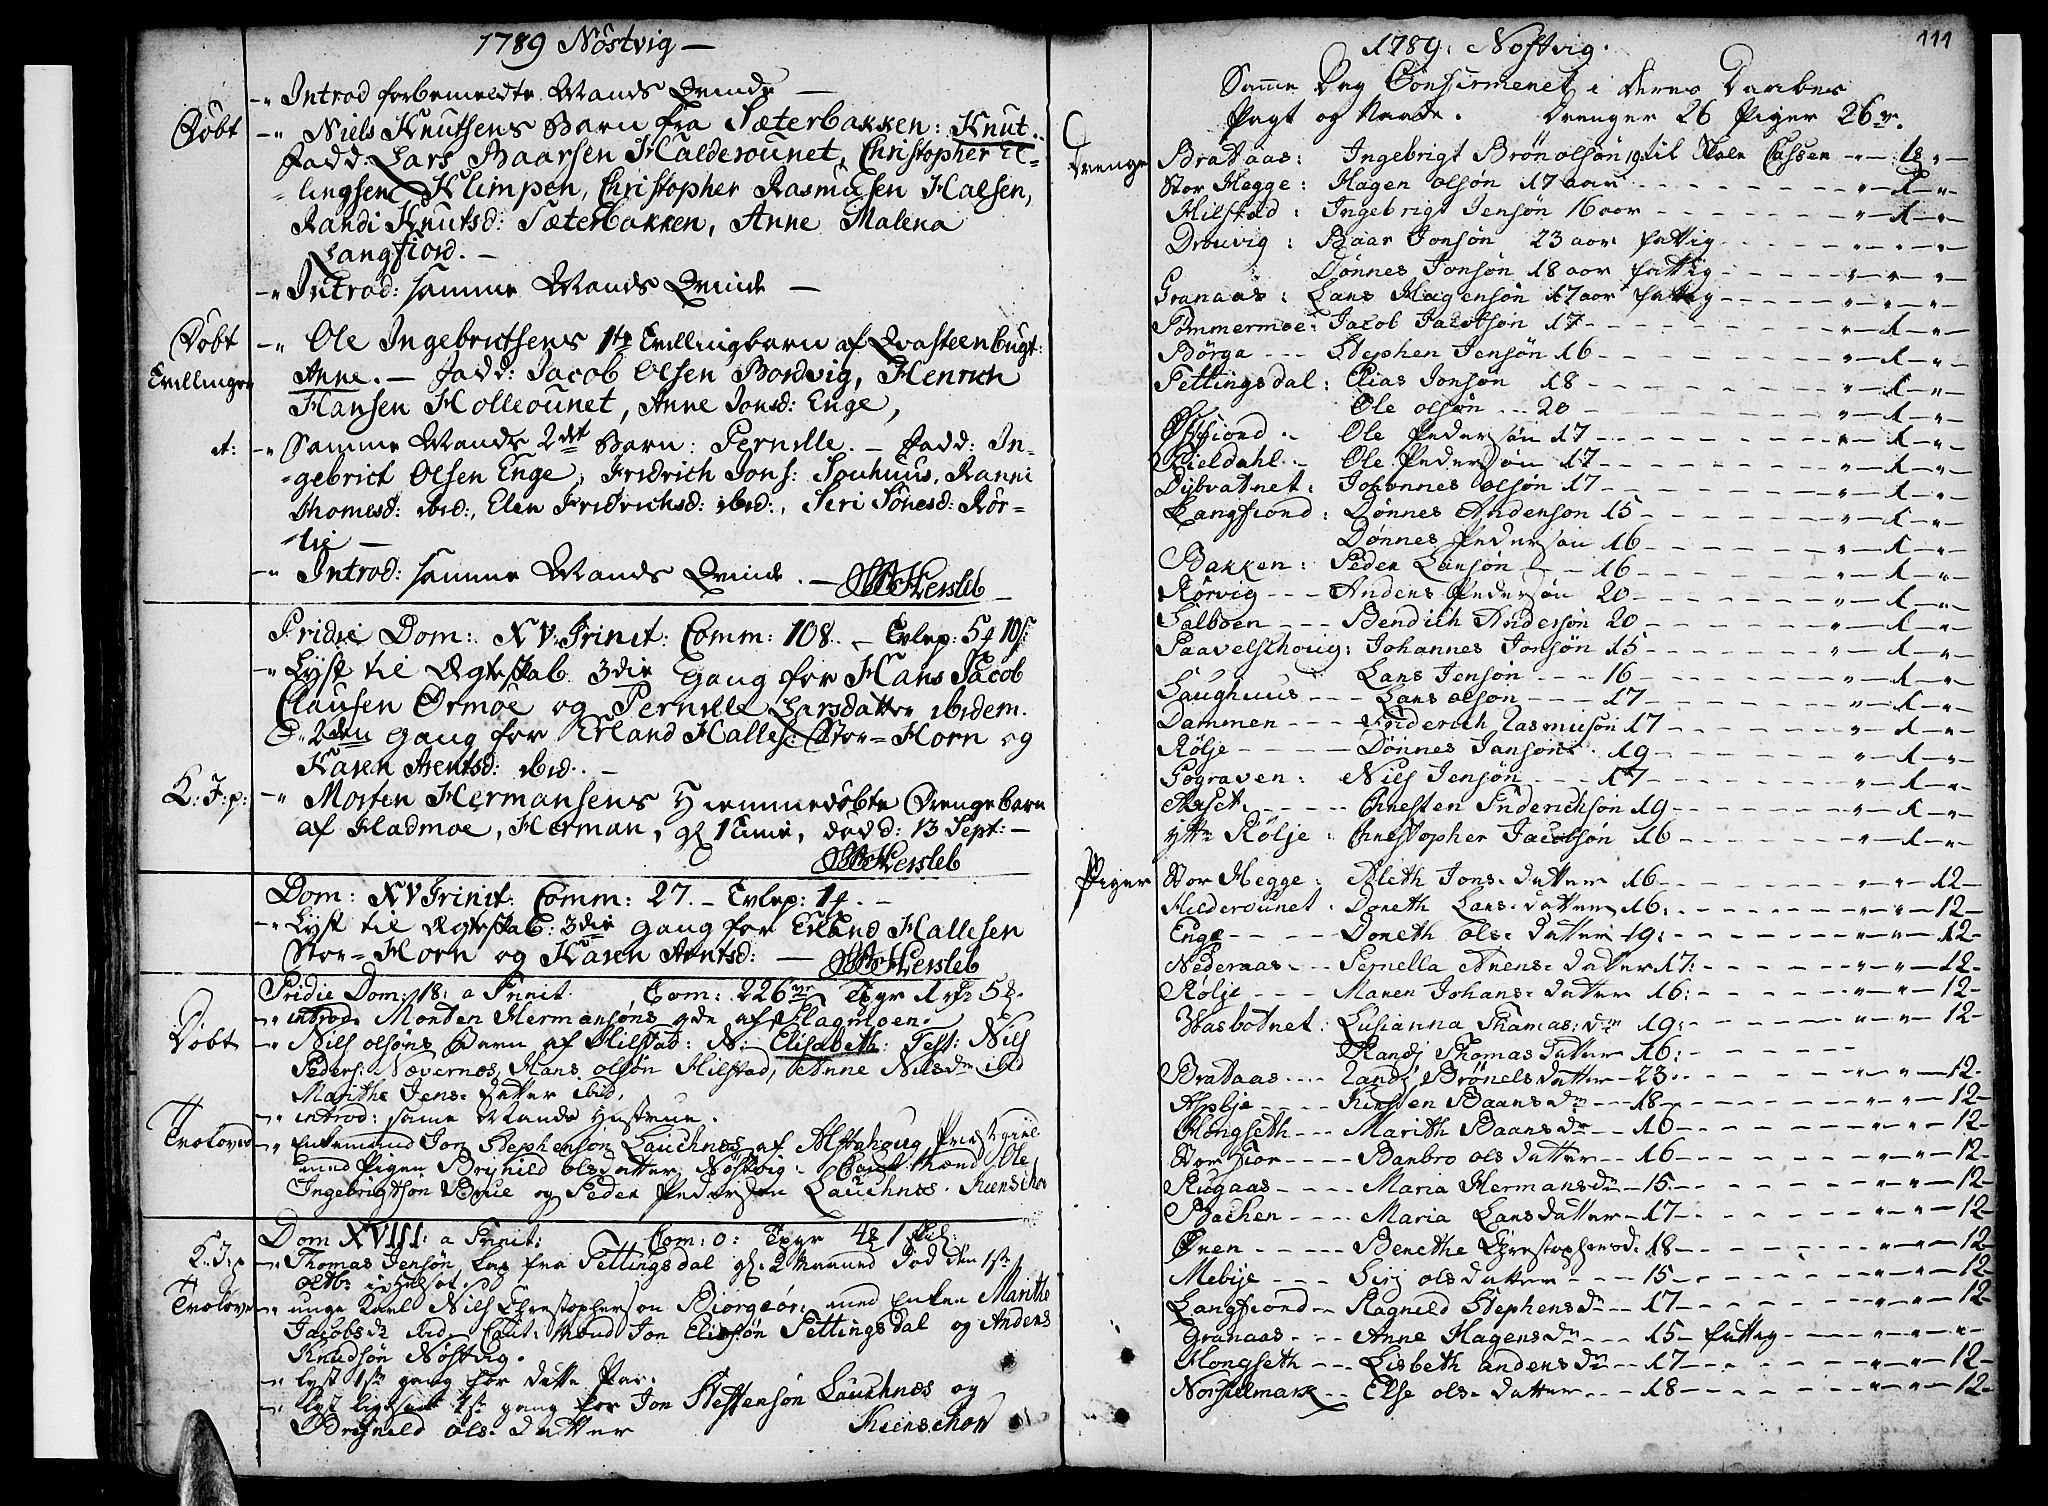 1789 Nöstvig —
-" Introd forbemeldte Mands Qvinde —
Döbt -" Niels Knutsens Barn fra Sæterbakken: Knut.
Fadd: Lars Baarsen Halderounet, Christopher El-
-lingsen Klimpen, Christopher Rasmusen Halsen,
Randi Knutsd: Sæterbakken, Anne Malena
Langfiord. —
-" Introd: samme Mands Qvinde —
Döbt -" Ole Ingebrictsens 1te Tvillingbarn af Qvasteenbugt:
Tvillinger Anne. — Fadd: Jacob Olsen Bordvig, Henrich
Hansen Holleounet, Anne Jonsd: Enge,
-" Samme Mands 2det Barn: Pernille. — Fadd: In-
-gebrict Olsen Enge, Fridrich Jons: Souhuus, Ranni
Thomesd: ibid:, Elen Fridrichsd: ibid:, Siri Jonesd: Rör-
-lie —
-" Introd: samme Mands Qvinde. — Hersleb
Pridie Dom: XV. Trinit: Comm: 108. — Tvlep: 5
-" Lyst til Ægteskab 3die Gang for Hans Jacob
Clausen Örmoe og Pernille Larsdatter ibidem.
2den Gang for Erland Halles: Stor-Horn og
Karen Arentsd: ibid. —
-" Morten Hermansens Hiemmedöbte Drengebarn
af Hadmoe, Herman, gl 1 time, död d: 13 Sept: —
Hersleb
Dom: XV Trinit: Comm: 27. — Tvlep: 1
-" Lyst til Ægteskab: 3die Gang for Erland Hallesen
Stor-Horn og Karen Arntsd: — Hersleb
Pridie Dom: 18: a Trinit. Com: 226
-" introd. Morten Hermansöns qde af Hagmoen.
Döbt -" Nils olsöns Barn af Hilstad: N: Elisabeth: Test: Nils
Peders: Nævernes, Hans olsön Hilstad, Anne Nilsdr ibid
Marithe Jens-datter ibid.
-" introd: same Mands Hustrue.
Troloved -" Enkemand Jon Stephenson Lauchnes af Alstahoug Præstegield
med Pigen Brynild olsdatter Nöstvig: Caut Mænd Ole
Ingebrigtsön Brue og Peder Pedersen Lauchnes. Kienschov
Dom XVIII: a Trinit: Com: 0:
-" Thomas Jensön, Lap fra Tettingsdal gl. 2 Maaned Död den 1ste
Trolove -" unge Karl Nils Christopherson Biorgeör: med Enken Marithe
Jacobsdr ibid, Caut: Mænd Jon Eliesön Tettingsdal og Anders
Knudsön Nöstvig.
-" lyst 1ste gang for dette Par.
-" lyst ligesaa 1ste gang for Jon Steffensön Lauchnes og
Brynild ols-datter Kienschov
111
1789: Nöstvig.
Samme Dag Confirmeret i deres Daabes
Pagt og Naade. Drenger 26 Piger 26
Drenge Bradaas: Ingebrigt Brönolsön 19 til Skole Cassen " — 18 " —
Stor Hegge: Hagen olsön 17 aar " — 1 — "
Hilstad: Ingebrigt Jensön 16 aar " — 1 — "
Drouvig: Baar Jonsön 23 aar fattig
Dönnes Jonsön 18 aar fattig
Granaas: Lars Hagensön 17 aar fattig
Tömmermoe: Jacob Jacobsön 17 " — 1 — "
Börga Stephen Jensön 16 " — 1 — "
Tettingsdal: Elias Jonsön 18 " — 1 — "
Ole olsön 20 " — 1 — "
Ole Pedersön 17 " — 1 — "
Ole Pedersön 17 " — 1 — "
Dybvatnet: Johannes olsön 17 " — 1 — "
Langfiord: Dönnes Andersön 15 " — 1 — "
Dönnes Pedersön 16 " — 1 — "
Bakken: Peder Larsön 16 " — 1 — "
Rörvig Anders Pedersön 20 " — 1 — "
Salboen Bendich Andersön 20 " — 1 — "
Paavelschoug: Johannes Jonsön 15 " — 1 — "
Lars Jensön 16 " — 1 — "
Saughuus Lars olsön 17 " — 1 — "
Dammen Friderich Rasmusön 17 " — 1 — "
Rölje Dönnes Jansön 19 " — 1 — "
Tograven: Nils Jensön 17 " — 1 — "
Chresten Friderichsön 19 " — 1 — "
ytre Rölje: Chrestopher Jacobsön 16 " — 1 — "
Piger Stor Hegge: Aleth Jons-datter 16 " — " — 12 —
Hilderounet: Doreth Lars-datter 16: " — " — 12 —
Enge Doreth ols-datter 19: " — " — 12 —
Nederaas Pernella Arens-datter 17: " — " — 12 —
Rölje Maren Johans-datter 16: " — " — 12 —
Vasbotnet: Lusianna Thomas:dr 19: " — " — 12 —
Randj Thomasdatter 16:
Bradaas Randj Brönelsdatter 23 " — " — 12 —
Kirsten Baarsdr 18 " — " — 12 —
Hongseth Marith Baarsdr 16 " — " — 12 —
Barbro olsdatter 16 " — " — 12 —
Rugaas Maria Hermansdr 15 " — " — 12 —
Bachen Maria Larsdatter 17 " — " — 12 —
Ören Benethe Chrestophersd. 18 " — " — 12 —
Mebye Sirj olsdatter 15 " — " — 12 —
Langfiord Ragnild Stephensdr 17 " — " — 12 —
Granaas Anne Hagensdr 15 fattig
Hongseth Lisbeth andersdr 17 " — " — 12 —
Norfielmark Else ols-datter 18 " — " — 12 —